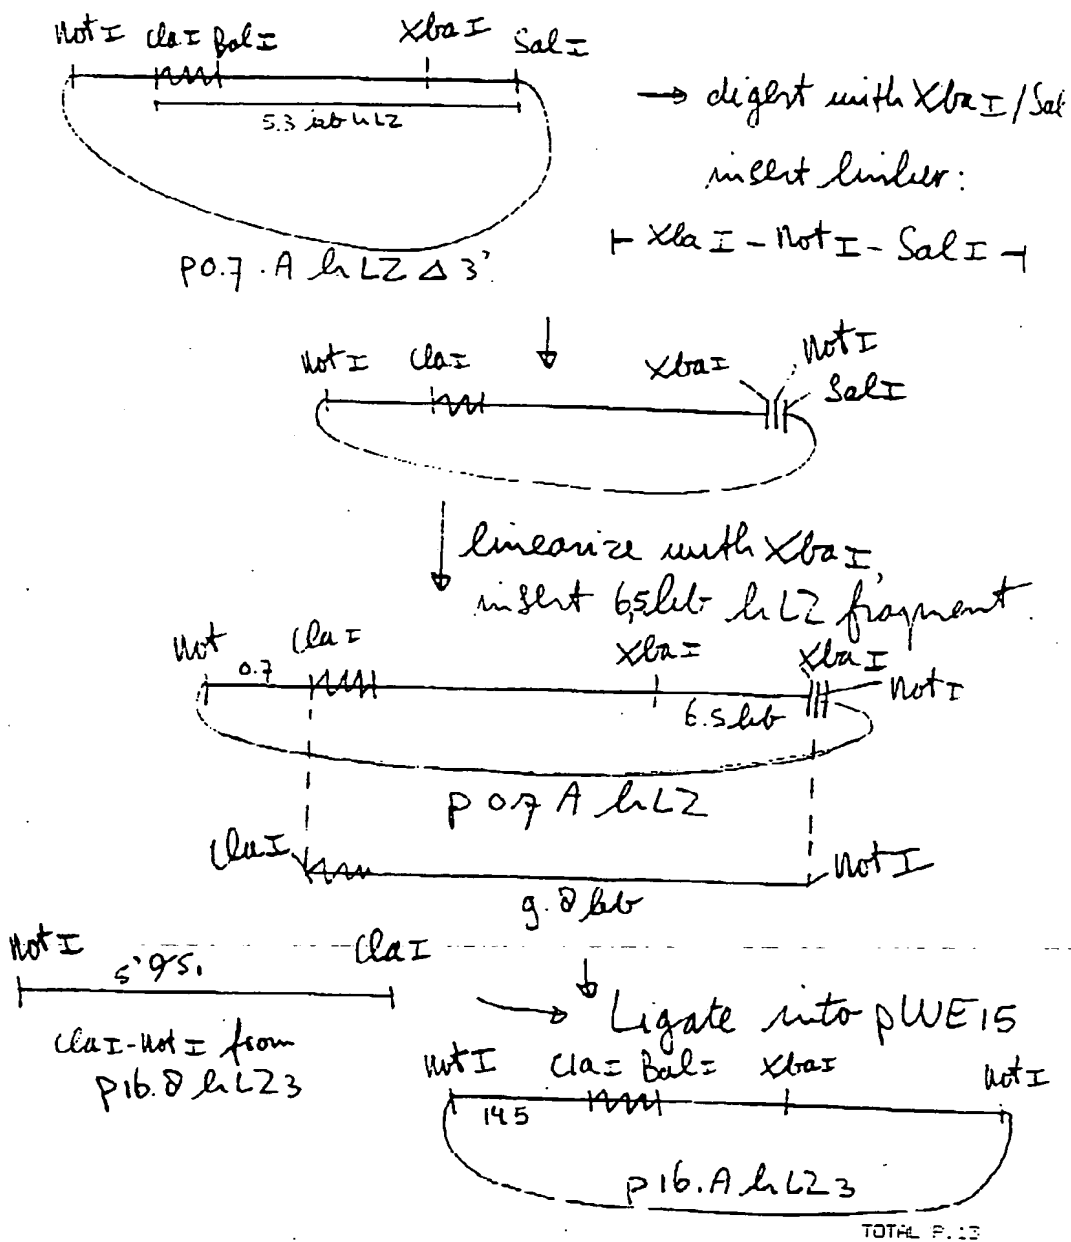 Not I ClaI BalI XbaI SalI
5.3 kb hLZ
→ digest with XbaI/Sal
insert linker:
⊢ XbaI - NotI - SalI ⊣
p0.7.A hLZ Δ 3'
NotI ClaI XbaI NotI
SalI
linearize with XbaI,
insert 6,5 kb hLZ fragment
Not ClaI XbaI XbaI
0.7 NotI
6.5 kb
p 0.7 A hLZ
ClaI NotI
9.8 kb
NotI ClaI
ClaI-NotI from
p16.8 hLZ3
Ligate into pWE15
NotI ClaI BalI XbaI NotI
14.5
p16.A hLZ3
TOTAL P.13